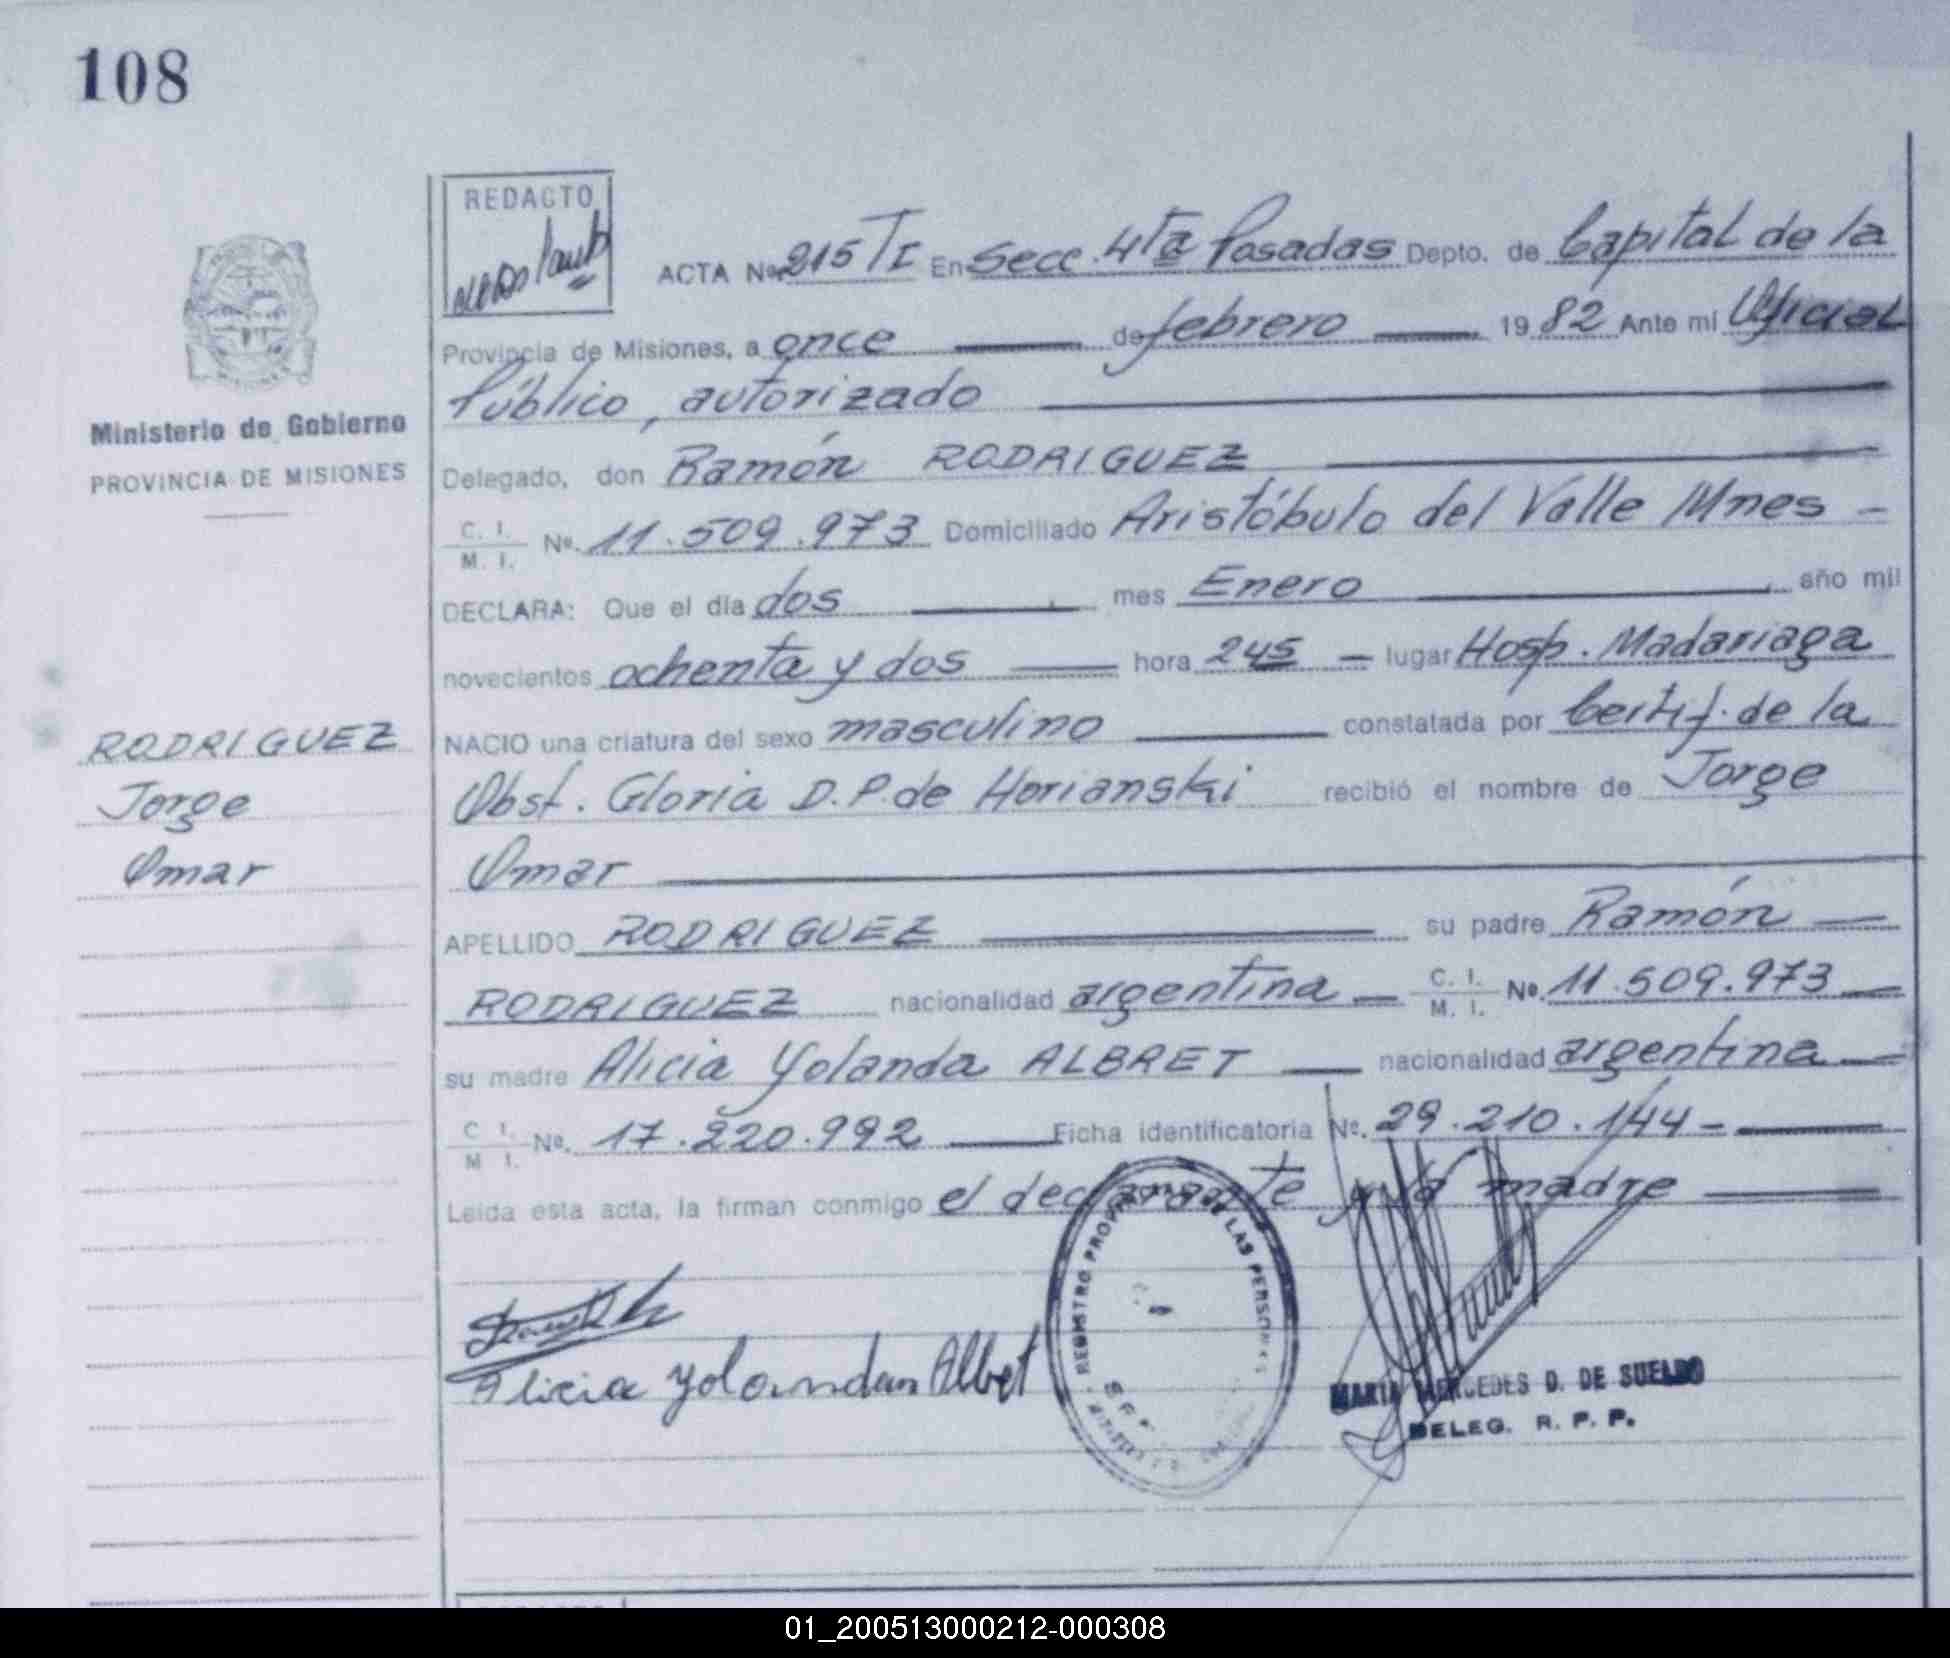 108
REDACTO
ACTA Nº 215 TI En Secc. 4ta Posadas Depto. de Capital de la
Provincia de Misiones, a once de febrero 1982 Ante mí Oficial
Público, autorizado
Ministerio de Gobierno
PROVINCIA DE MISIONES
MISIONES
Delegado, don Ramón RODRIGUEZ
C. I. M. I. Nº. 11.509.973 Domiciliado Aristóbulo del Valle Mnes -
DECLARA: Que el día dos mes Enero año mil
novecientos ochenta y dos hora 245 lugar Hosp. Madariaga
NACIO una criatura del sexo masculino constatada por Certif. de la
Obst. Gloria D.P. de Horianski recibió el nombre de Jorge
Omar
RODRIGUEZ
Jorge
Omar
APELLIDO RODRIGUEZ su padre Ramón
RODRIGUEZ nacionalidad argentina C. I. M. I. Nº. 11.509.973
su madre Alicia Yolanda ALBRET nacionalidad argentina
C. I. M. I. Nº. 17.220.992 Ficha identificatoria Nº. 29.210.144 -
Leída esta acta, la firman conmigo el declarante y la madre
Alicia Yolandan Albret
REGISTRO DE LAS PERSONAS
MARIA MERCEDES D. DE SUELDO
DELEG. R. P. P.
01_200513000212-000308